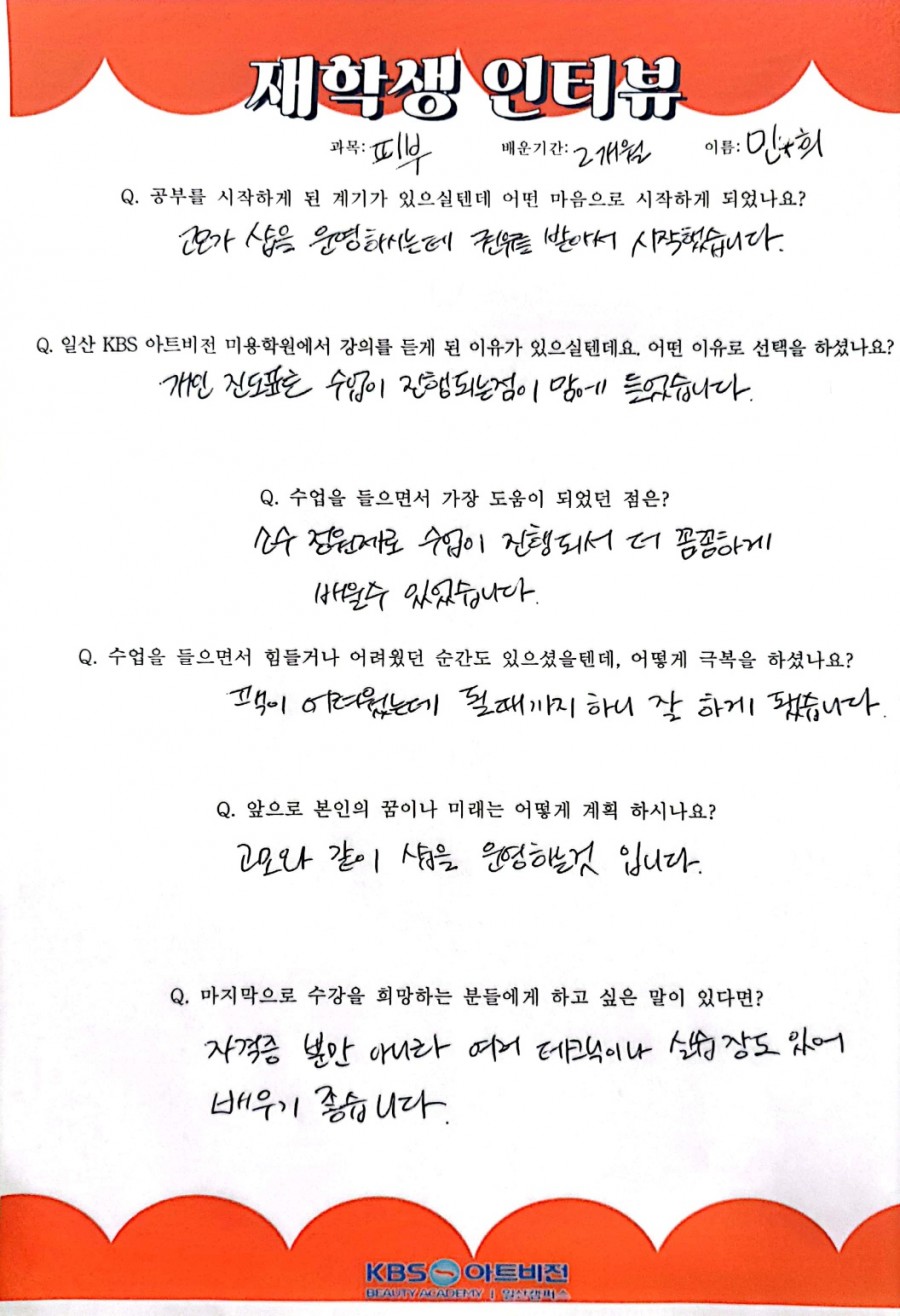 재학생 인터뷰
과목: 피부 배운기간: 2개월 이름: 민*희
Q. 공부를 시작하게 된 계기가 있으실텐데 어떤 마음으로 시작하게 되었나요?
고모가 샵을 운영하시는데 권유를 받아서 시작했습니다.
Q. 일산 KBS 아트비전 미용학원에서 강의를 듣게 된 이유가 있으실텐데요. 어떤 이유로 선택을 하셨나요?
개인 진도표로 수업이 진행되는점이 맘에 들었습니다.
Q. 수업을 들으면서 가장 도움이 되었던 점은?
소수 정원제로 수업이 진행되서 더 꼼꼼하게
배울수 있었습니다.
Q. 수업을 들으면서 힘들거나 어려웠던 순간도 있으셨을텐데, 어떻게 극복을 하셨나요?
이 어려웠는데 될때까지 하니 잘 하게 됐습니다.
Q. 앞으로 본인의 꿈이나 미래는 어떻게 계획 하시나요?
고모와 같이 샵을 운영하는것 입니다.
Q. 마지막으로 수강을 희망하는 분들에게 하고 싶은 말이 있다면?
자격증 뿐만 아니라 여러 테크닉이나 실습장도 있어
배우기 좋습니다.
KBS 아트비전
BEAUTY ACADEMY | 일산캠퍼스